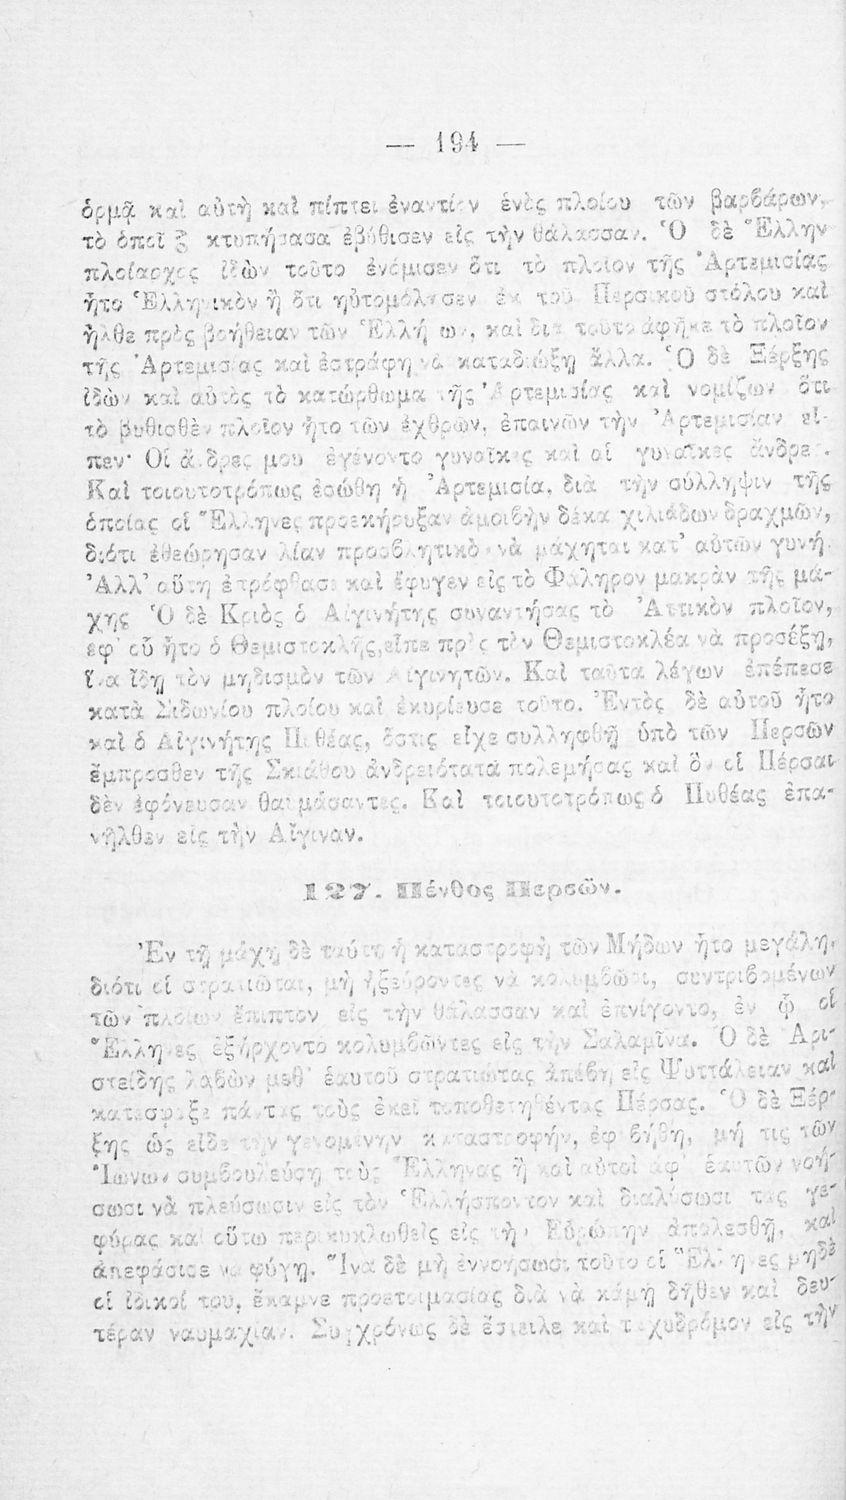 — 194 —
ὁρμᾷ καὶ αὐτὴ καὶ πίπτει ἐναντίον ἑνὸς πλοίου τῶν βαρβάρων,
τὸ ὁποῖον κτυπήσασα ἐβύθισεν εἰς τὴν θάλασσαν. Ὁ δὲ Ἕλλην
πλοίαρχος ἰδὼν τοῦτο ἐνόμισεν ὅτι τὸ πλοῖον τῆς Ἀρτεμισίας
ἦτο Ἑλληνικὸν ἢ ὅτι ηὐτομόλησεν ἐκ τοῦ Περσικοῦ στόλου καὶ
ἦλθε πρὸς βοήθειαν τῶν Ἑλλήνων, καὶ διὰ τοῦτο ἀφῆκε τὸ πλοῖον
τῆς Ἀρτεμισίας καὶ ἐστράφη νὰ καταδιώξῃ ἄλλα. Ὁ δὲ Ξέρξης
ἰδὼν καὶ αὐτὸς τὸ κατώρθωμα τῆς Ἀρτεμισίας καὶ νομίζων ὅτι
τὸ βυθισθὲν πλοῖον ἦτο τῶν ἐχθρῶν, ἐπαινῶν τὴν Ἀρτεμισίαν εἶ-
πεν· Οἱ ἄνδρες μου ἐγένοντο γυναῖκες καὶ αἱ γυναῖκες ἄνδρες.
Καὶ τοιουτοτρόπως ἐσώθη ἡ Ἀρτεμισία, διὰ τὴν σύλληψιν τῆς
ὁποίας οἱ Ἕλληνες προεκήρυξαν ἀμοιβὴν δέκα χιλιάδων δραχμῶν,
διότι ἐθεώρησαν λίαν προσβλητικὸν νὰ μάχηται κατ' αὐτῶν γυνή.
Ἀλλ' αὕτη ἐπρόφθασε καὶ ἔφυγεν εἰς τὸ Φάληρον μακρὰν τῆς μά-
χης Ὁ δὲ Κριὸς ὁ Αἰγινήτης συναντήσας τὸ Ἀττικὸν πλοῖον,
ἐφ' οὗ ἦτο ὁ Θεμιστοκλῆς, εἶπε πρὸς τὸν Θεμιστοκλέα νὰ προσέξῃ,
ἵνα ἴδῃ τὸν μηδισμὸν τῶν Αἰγινητῶν. Καὶ ταῦτα λέγων ἐπέπεσε
κατὰ Σιδωνίου πλοίου καὶ ἐκυρίευσε τοῦτο. Ἐντὸς δὲ αὐτοῦ ἦτο
καὶ ὁ Αἰγινήτης Πυθέας, ὅστις εἶχε συλληφθῆ ὑπὸ τῶν Περσῶν
ἔμπροσθεν τῆς Σκιάθου ἀνδρειότατα πολεμήσας καὶ ὃν οἱ Πέρσαι
δὲν ἐφόνευσαν θαυμάσαντες. Καὶ τοιουτοτρόπως ὁ Πυθέας ἐπα-
νῆλθεν εἰς τὴν Αἴγιναν.
127. Πένθος Περσῶν.
Ἐν τῇ μάχῃ δὲ ταύτῃ ἡ καταστροφὴ τῶν Μήδων ἦτο μεγάλη,
διότι οἱ στρατιῶται, μὴ ἠξεύροντες νὰ κολυμβῶσι, συντριβομένων
τῶν πλοίων ἔπιπτον εἰς τὴν θάλασσαν καὶ ἐπνίγοντο, ἐν ᾧ οἱ
Ἕλληνες ἐξήρχοντο κολυμβῶντες εἰς τὴν Σαλαμῖνα. Ὁ δὲ Ἀρι-
στείδης λαβὼν μεθ' ἑαυτοῦ στρατιώτας ἀπέβη εἰς Ψυττάλειαν καὶ
κατέσφαξε πάντας τοὺς ἐκεῖ τοποθετηθέντας Πέρσας. Ὁ δὲ Ξέρ-
ξης ὡς εἶδε τὴν γενομένην καταστροφήν, ἐφοβήθη, μή τις τῶν
Ἰώνων συμβουλεύσῃ τοὺς Ἕλληνας ἢ καὶ αὐτοὶ ἀφ' ἑαυτῶν νοή-
σωσι νὰ πλεύσωσιν εἰς τὸν Ἑλλήσποντον καὶ διαλύσωσι τὰς γε-
φύρας καὶ οὕτω περικυκλωθεὶς εἰς τὴν Εὐρώπην ἀπολεσθῇ, καὶ
ἀπεφάσισε νὰ φύγῃ. Ἵνα δὲ μὴ ἐννοήσωσι τοῦτο οἱ Ἕλληνες μηδὲ
οἱ ἰδικοί του, ἔκαμνε προετοιμασίας διὰ νὰ κάμῃ δῆθεν καὶ δευ-
τέραν ναυμαχίαν. Συγχρόνως δὲ ἔστειλε καὶ ταχυδρόμον εἰς τὴν